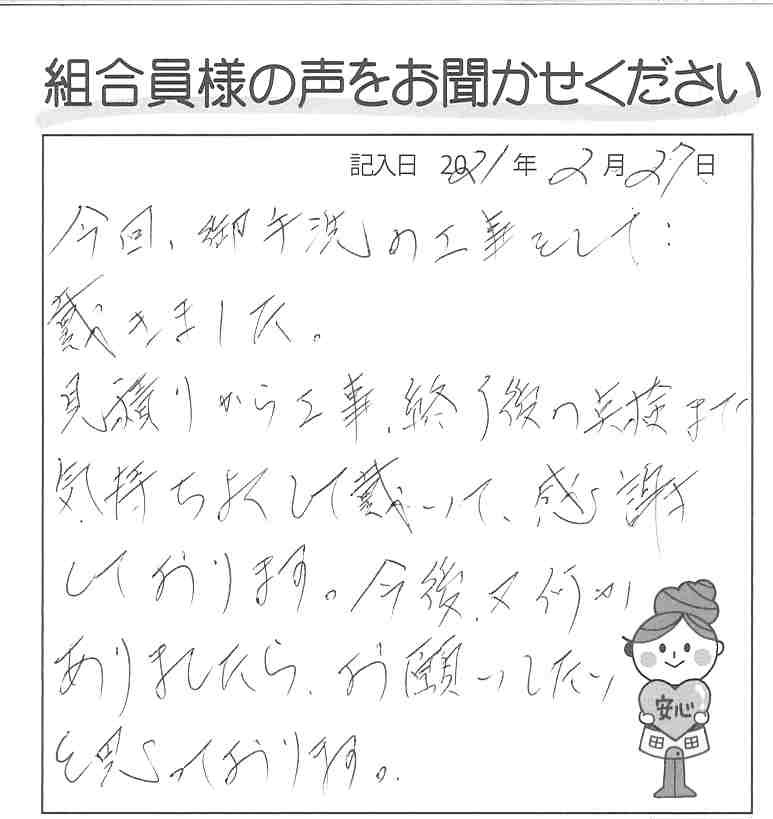 組合員様の声をお聞かせください
記入日 2021年2月27日
今回、御手洗の工事をして
戴きました。
見積りから工事、終了後の点検まで
気持ちよくして戴いて、感謝
しております。今後、又何か
ありましたら、お願いしたい
と思っております。
安心